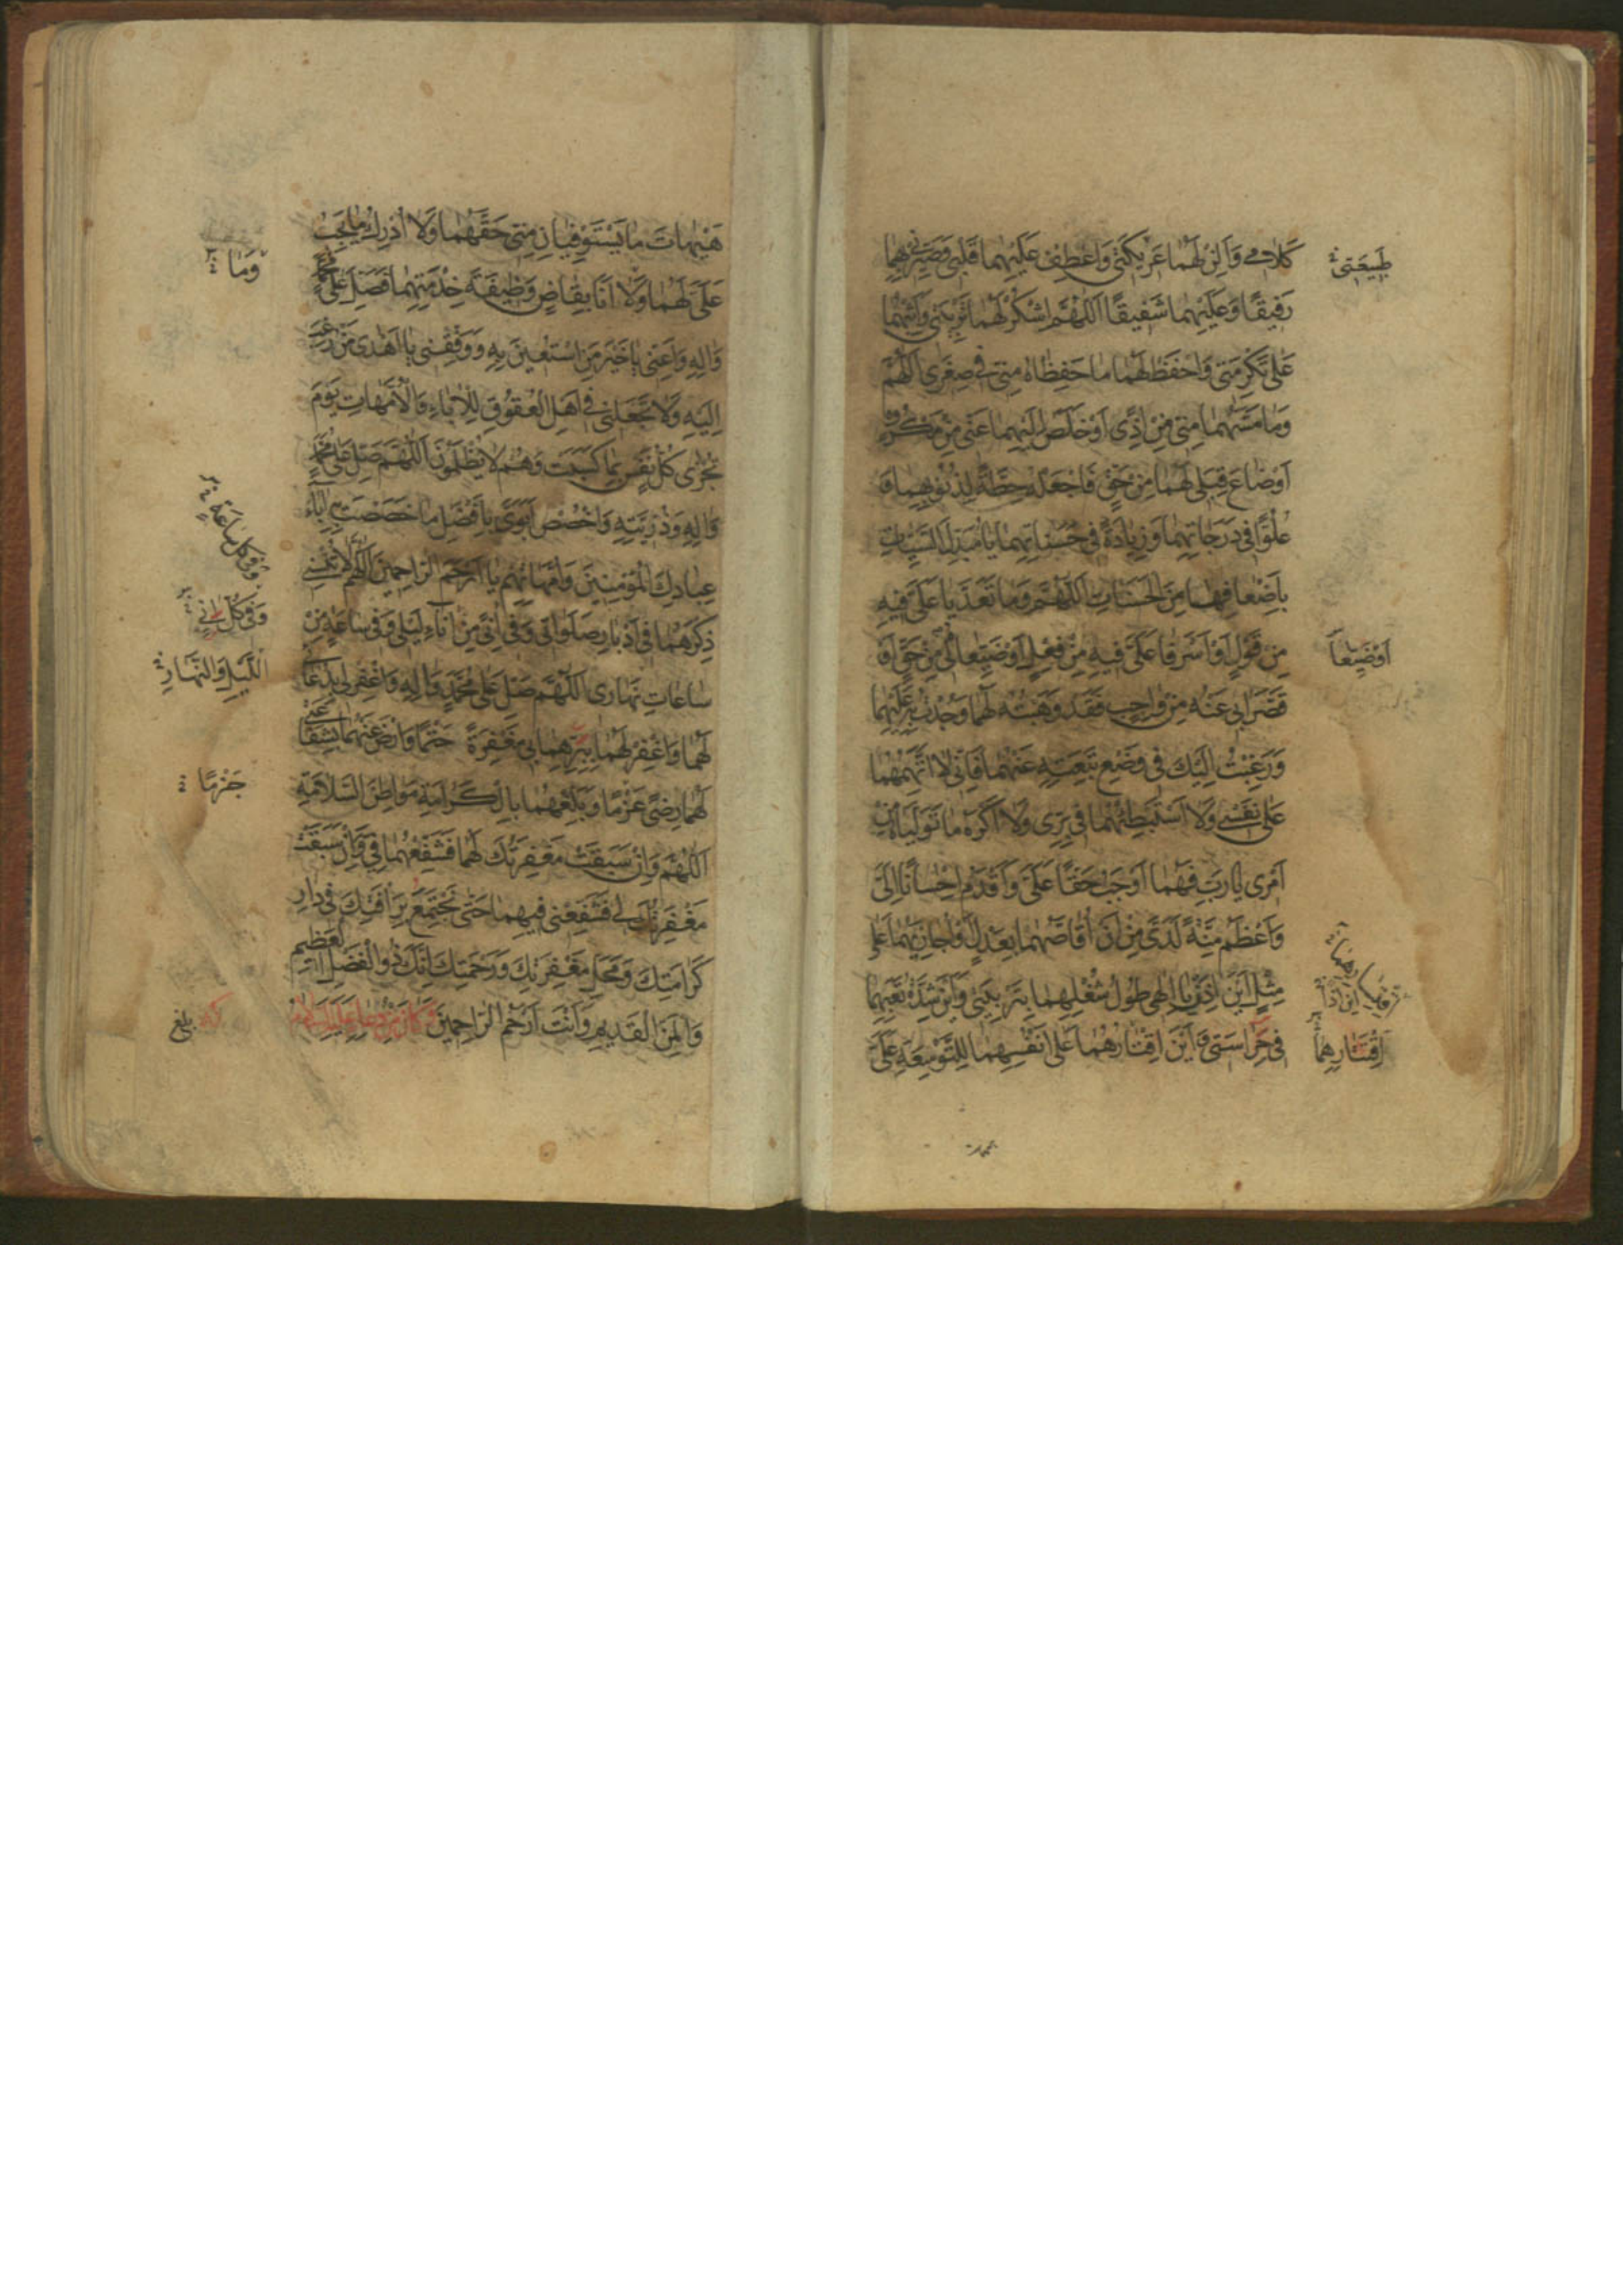 كَلامي وَاَلِنْ لَهُما عَريكَتي وَاعْطِفْ عَلَيْهِما قَلْبي وَصَيِّرْني بِهِما
رَفيقًا وَعَلَيْهِما شَفيقًا اَللّهُمَّ اشْكُرْ لَهُما تَرْبِيَتي وَاَثِبْهُما
عَلى تَكْرِمَتي وَاحْفَظْ لَهُما ما حَفِظاهُ مِنّي في صِغَري اَللّهُمَّ
وَما مَسَّهُما مِنّي مِنْ اَذًى اَوْ خَلَصَ اِلَيْهِما عَنّي مِنْ مَكْرُوهٍ
اَوْ ضاعَ قِبَلي لَهُما مِنْ حَقٍّ فَاجْعَلْهُ حِطَّةً لِذُنُوبِهِما وَ
عُلُوًّا في دَرَجاتِهِما وَزِيادَةً في حَسَناتِهِما يا مُبَدِّلَ السَّيِّئاتِ
بِاَضْعافِها مِنَ الْحَسَناتِ اَللّهُمَّ وَما تَعَدَّيا عَلَيَّ فيهِ
مِنْ قَوْلٍ اَوْ اَسْرَفا عَلَيَّ فيهِ مِنْ فِعْلٍ اَوْ ضَيَّعا لي مِنْ حَقٍّ اَوْ
قَصَّرا بي عَنْهُ مِنْ واجِبٍ فَقَدْ وَهَبْتُهُ لَهُما وَجُدْتُ بِهِ عَلَيْهِما
وَرَغِبْتُ اِلَيْكَ في وَضْعِ تَبِعَتِهِ عَنْهُما فَاِنّي لا اَتَّهِمُهُما
عَلى نَفْسي وَلا اَسْتَبْطِئُهُما في بِرّي وَلا اَكْرَهُ ما تَوَلَّياهُ مِنْ
اَمْري يا رَبِّ فَهُما اَوْجَبُ حَقًّا عَلَيَّ وَاَقْدَمُ اِحْسانًا اِلَيَّ
وَاَعْظَمُ مِنَّةً لَدَيَّ مِنْ اَنْ اُقاصَّهُما بِعَدْلٍ اَوْ اُجازِيَهُما عَلى
مِثْلٍ اَيْنَ اِذًا يا اِلهي طُولُ شُغْلِهِما بِتَرْبِيَتي وَاَيْنَ شِدَّةُ تَعَبِهِما
في حِراسَتي وَاَيْنَ اِقْتارُهُما عَلى اَنْفُسِهِما لِلتَّوْسِعَةِ عَلَيَّ
طَبيعَتي
اَوْ ضَيَّعا
اِقْتارِهِما
هَيْهاتَ ما يَسْتَوْفِيانِ مِنّي حَقَّهُما وَلا اُدْرِكُ ما يَجِبُ
عَلَيَّ لَهُما وَلا اَنَا بِقاضٍ وَظيفَةَ خِدْمَتِهِما فَصَلِّ عَلى مُحَمَّدٍ
وَالِهِ وَاَعِنّي يا خَيْرَ مَنِ اسْتُعينَ بِهِ وَوَفِّقْني يا اَهْدى مَنْ رُغِبَ
اِلَيْهِ وَلا تَجْعَلْني في اَهْلِ الْعُقُوقِ لِلْاباءِ وَالْاُمَّهاتِ يَوْمَ
تُجْزى كُلُّ نَفْسٍ بِما كَسَبَتْ وَهُمْ لا يُظْلَمُونَ اَللّهُمَّ صَلِّ عَلى مُحَمَّدٍ
وَالِهِ وَذُرِّيَّتِهِ وَاخْصُصْ اَبَوَيَّ بِاَفْضَلِ ما خَصَصْتَ بِهِ اباءَ
عِبادِكَ الْمُؤْمِنينَ وَاُمَّهاتِهِمْ يا اَرْحَمَ الرّاحِمينَ اَللّهُمَّ لا تُنْسِني
ذِكْرَهُما في اَدْبارِ صَلَواتي وَفي اِنًى مِنْ اناءِ لَيْلي وَفي ساعَةٍ مِنْ
ساعاتِ نَهاري اَللّهُمَّ صَلِّ عَلى مُحَمَّدٍ وَالِهِ وَاغْفِرْ لي بِدُعائي
لَهُما وَاغْفِرْ لَهُما بِبِرِّهِما بي مَغْفِرَةً حَتْمًا وَارْضَ عَنْهُما بِشَفاعَتي
لَهُما رِضًى عَزْمًا وَبَلِّغْهُما بِالْكَرامَةِ مَواطِنَ السَّلامَةِ
اَللّهُمَّ وَاِنْ سَبَقَتْ مَغْفِرَتُكَ لَهُما فَشَفِّعْهُما فِيَّ وَاِنْ سَبَقَتْ
مَغْفِرَتُكَ لي فَشَفِّعْني فيهِما حَتّى نَجْتَمِعَ بِرَأْفَتِكَ في دارِ
كَرامَتِكَ وَمَحَلِّ مَغْفِرَتِكَ وَرَحْمَتِكَ اِنَّكَ ذُو الْفَضْلِ الْعَظيمِ
وَالْمَنِّ الْقَديمِ وَاَنْتَ اَرْحَمُ الرّاحِمينَ وَكانَ مِنْ دُعائِهِ عَلَيْهِ السَّلامُ
وَما
وَفي كُلِّ ساعَةٍ
وَفي كُلِّ اِنًى
اللَّيْلِ وَالنَّهارِ
جَزْمًا
بلغ